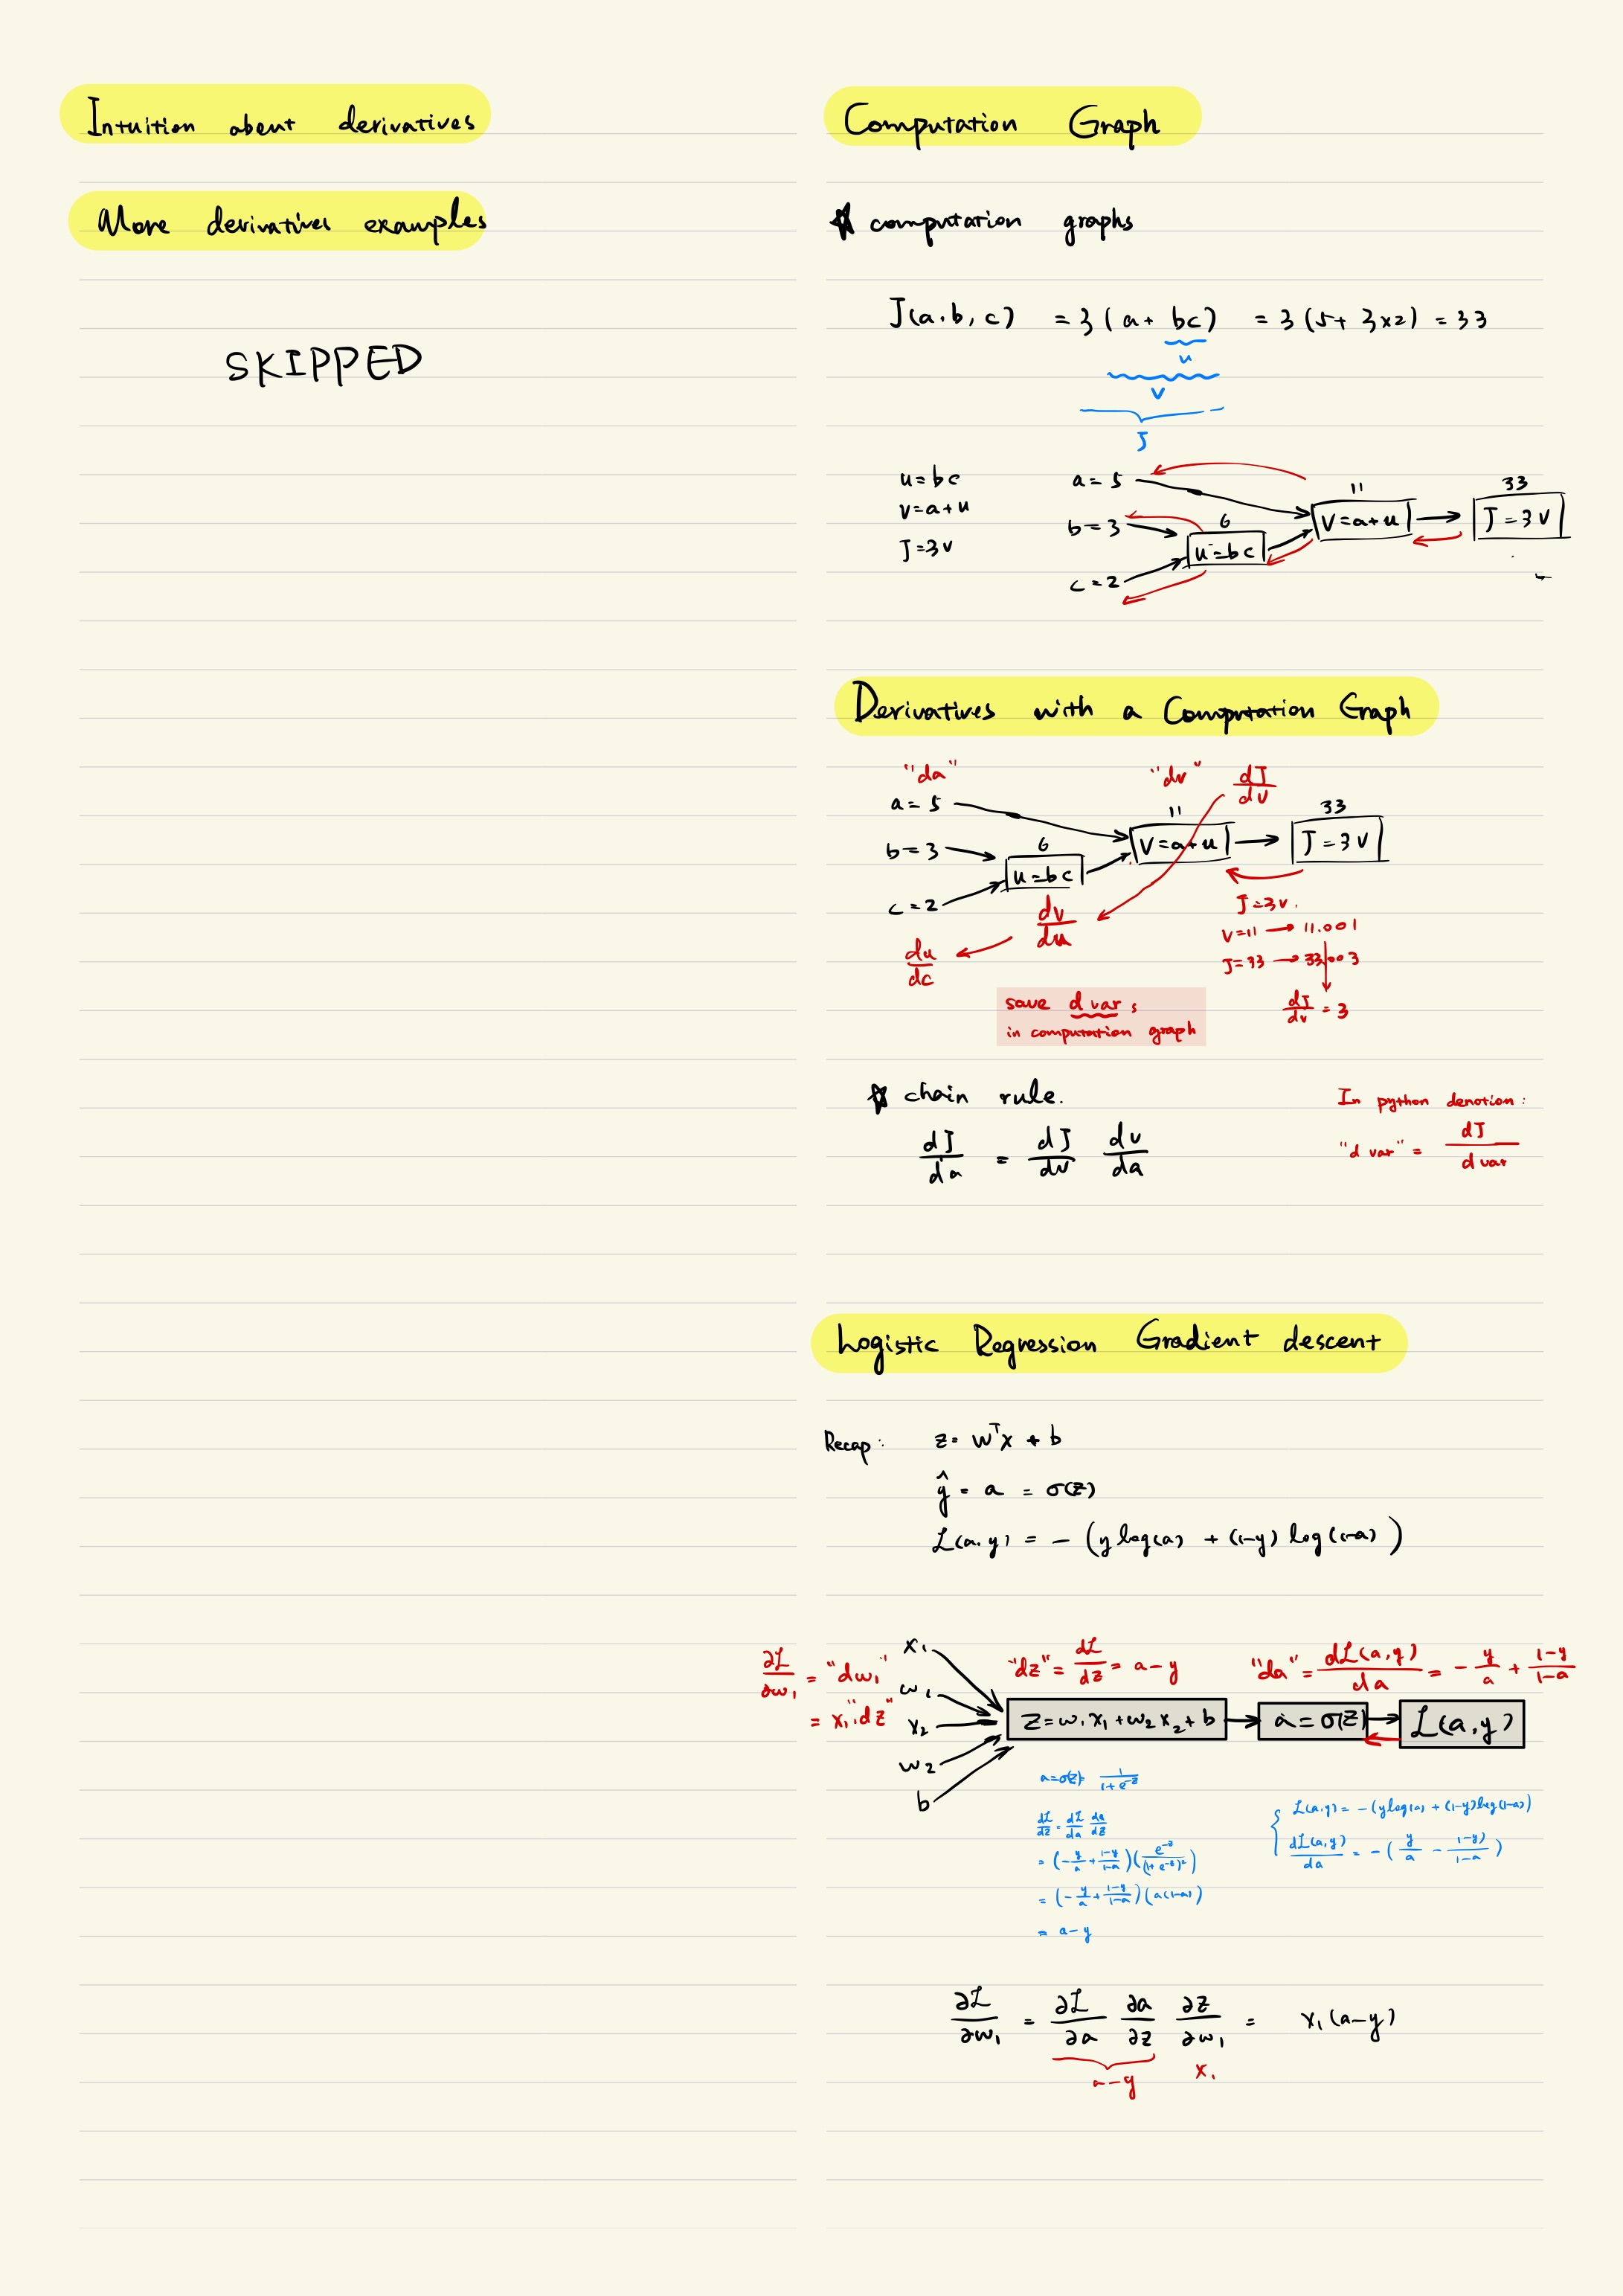 Intuition about derivatives
More derivatives examples
SKIPPED
Computation Graph
☆ computation graphs
J(a.b, c) = 3 ( a + bc) = 3 (5 + 3×2) = 33
u
v
J
u = bc
v = a + u
J = 3v
a = 5
b = 3
c = 2
6
u = bc
11
v = a + u
33
J = 3v
Derivatives with a Computation Graph
"da"
"dv" dJ/dv
a = 5
b = 3
c = 2
6
u = bc
11
v = a + u
33
J = 3v
dv/du
du/dc
J = 3v.
v = 11 → 11.001
J = 33 → 33.003
dJ/dv = 3
save d var s
in computation graph
☆ chain rule.
dJ/da = dJ/dv dv/da
In python denotion :
"d var" = dJ/d var
Logistic Regression Gradient descent
Recap: z = wᵀx + b
ŷ = a = σ(z)
ℒ(a.y) = - (y log(a) + (1-y) log(1-a))
∂ℒ/∂w₁ = "dw₁"
= x₁ "dz"
x₁
w₁
x₂
w₂
b
"dz" = dℒ/dz = a-y
"da" = dℒ(a,y)/da = - y/a + 1-y/1-a
z = w₁x₁ + w₂x₂ + b
a = σ(z)
ℒ(a,y)
a = σ(z) = 1/1+e⁻ᶻ
dℒ/dz = dℒ/da da/dz
= (- y/a + 1-y/1-a)(e⁻ᶻ/(1+e⁻ᶻ)²)
= (- y/a + 1-y/1-a)(a(1-a))
= a-y
ℒ(a,y) = -(y log(a) + (1-y) log(1-a))
dℒ(a,y)/da = -( y/a - (1-y)/1-a )
∂ℒ/∂w₁ = ∂ℒ/∂a ∂a/∂z ∂z/∂w₁ = x₁(a-y)
a-y
x₁